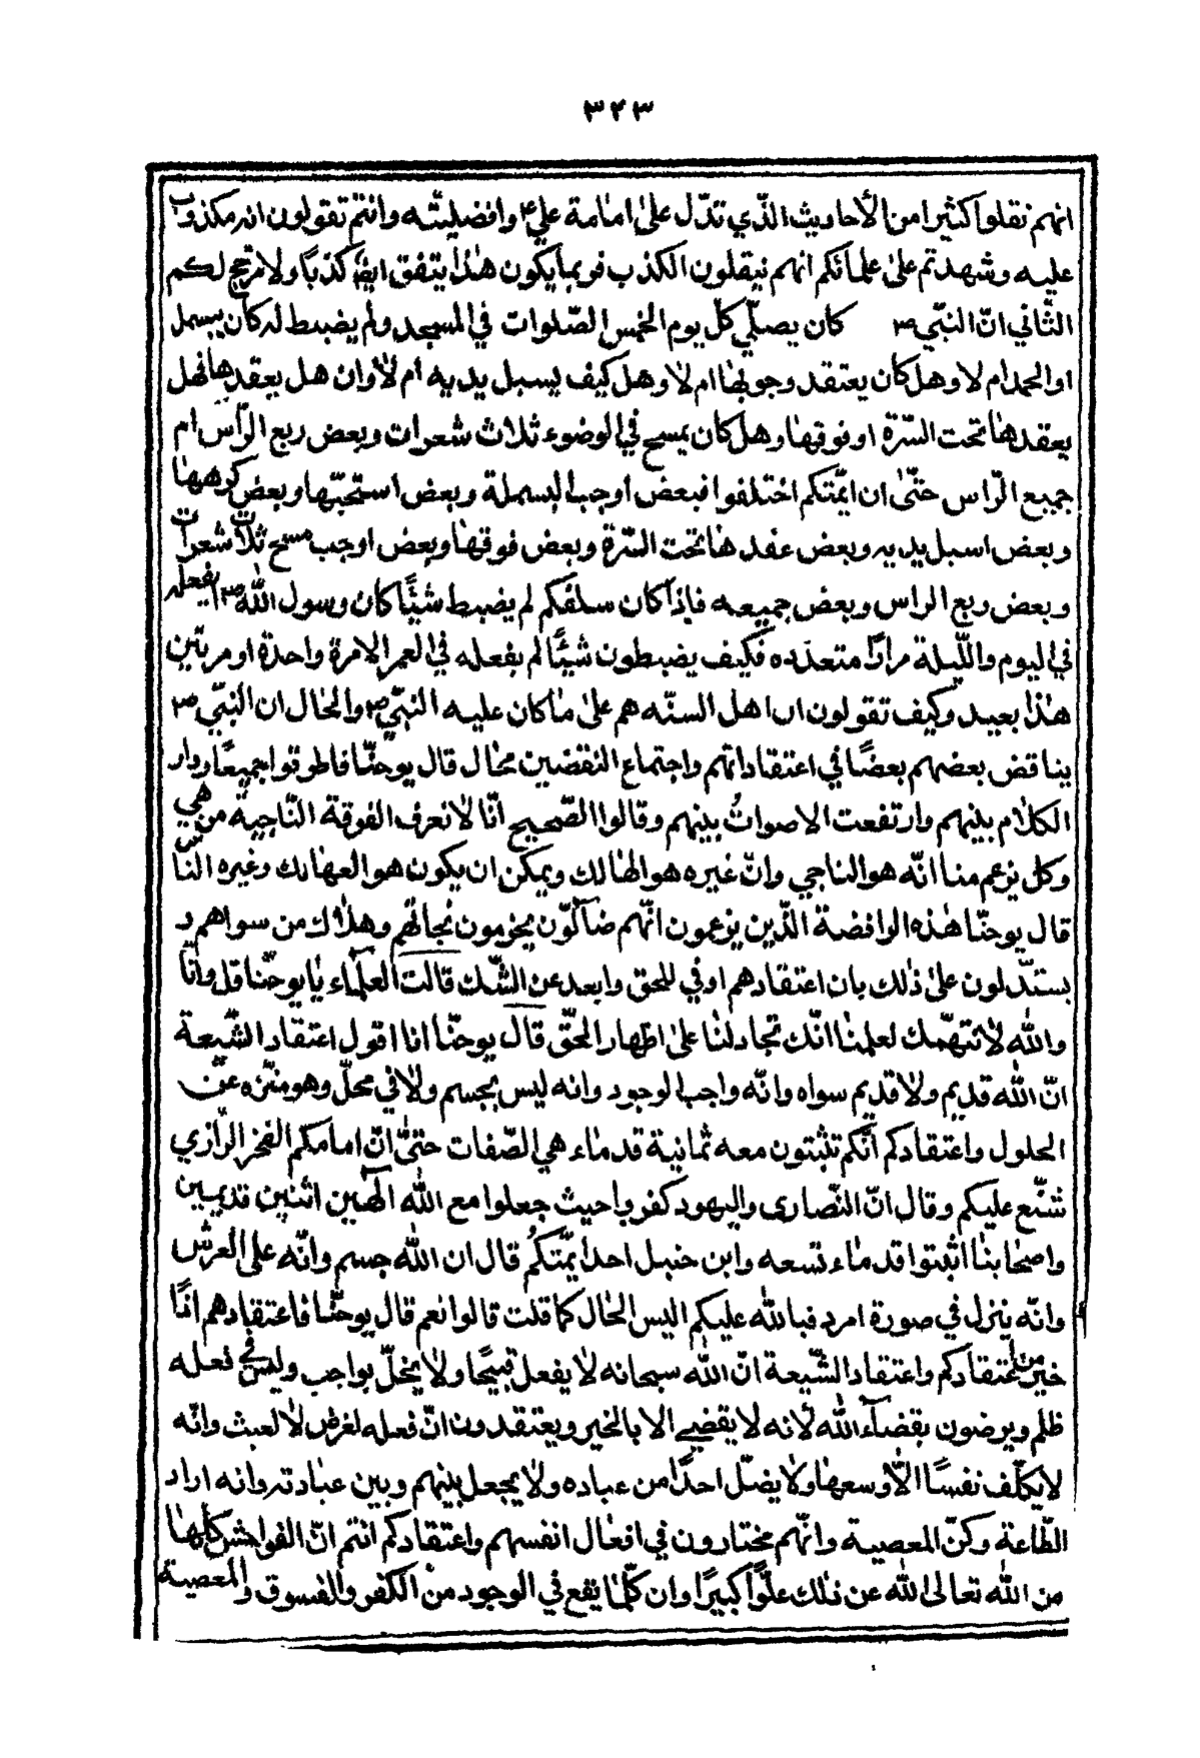 ٣٢٣
انهم نقلوا كثيرا من الأحاديث الذّي تدّل علىٰ امامة علي ع وافضليّته وانتم تقولون انه مكذوب
عليه وشهدتم علىٰ علمائكم انهم ينقلون الكذب فربما يكون هذا يتفق ايضا كذبًا ولا مرجّح لكم
الثّاني انّ النبّي ص كان يصلّي كلّ يوم الخمس الصّلوات في المسجد ولم يضبط له كان يبسمل
او الحمد ام لا وهل كان يعتقد وجوبها ام لا وهل كيف يسبل يديه أم لا وان هل يعقدها فهل
يعقدها تحت السّرة او فوقها وهل كان يمسح في الوضوء ثلاث شعرات وبعض ربع الرّاس ام
جميع الرّاس حتّىٰ ان ائمّتكم اختلفوا فبعض اوجب البسملة وبعض استحبّها وبعض كرهها
وبعض اسبل يديه وبعض عقدها تحت السّرة وبعض فوقها وبعض اوجب مسح ثلاث شعرات
وبعض ربع الراس وبعض جميعه فإذا كان سلفكم لم يضبط شيئًا كان رسول اللّه ص يفعله
في اليوم واللّيلة مرارًا متعدّده فكيف يضبطون شيئًا لم يفعله في العمر الا مرة واحدة او مرتين
هذا بعيد وكيف تقولون ان اهل السنّه هم علىٰ ما كان عليه النبّي ص والحال ان النبّي ص
يناقض بعضهم بعضًا في اعتقاداتهم واجتماع النقضين محال قال يوحنّا فاطرقوا جميعًا ودار
الكلام بينهم وارتفعت الاصواتُ بينهم وقالوا الصّحيح انّا لا نعرف الفرقة النّاجية من هي
وكل يزعم منا انّه هو الناجي وانّ غيره هو الهالك ويمكن ان يكون هو الهالك وغيره النّاس
قال يوحنّا هذه الرافضة الّذين يزعمون انّهم ضآلّون يجزمون بنجاتهم وهلاك من سواهم و
يستدّلون علىٰ ذلك بان اعتقادهم اوفي للحق وابعد عن الشّك قالت العلماء يا يوحّنا قل وانّا
واللّه لا نتهّمك لعلمنا انّك تجادلنا علىٰ اظهار الحّق قال يوحنّا انا اقول اعتقاد الشّيعة
انّ اللّه قديم ولا قديم سواه وانّه واجب الوجود وانه ليس بجسم ولا في محلّ وهو منزّه عن
الحلول واعتقادكم أنّكم تثبتون معه ثمانية قدماء هي الصّفات حتىّٰ انّ امامكم الفخر الرّازي
شنّع عليكم وقال انّ النّصارى واليهود كفروا حيث جعلوا مع اللّه الهين اثنين قديمين
واصحابنا اثبتوا قدماء تسعه وابن حنبل احد ائمّتكم قال ان اللّه جسم وانّه على العرش
وانّه ينزل في صورة امرد فباللّه عليكم اليس الحال كما قلت قالوا نعم قال يوحنّا فاعتقادهم اذًا
خير من اعتقادكم واعتقاد الشّيعة انّ اللّه سبحانه لا يفعل قبيحًا ولا يخلّ بواجب وليس في فعله
ظلم ويرضون بقضآء اللّه لأنه لا يقضي الا بالخير ويعتقدون انّ فعله لغرض لا لعبث وانّه
لا يكلّف نفسًا الاّ وسعها ولا يضلّ احدًا من عباده ولا يجعل بينهم وبين عبادته وانه اراد
الطّاعة وكره المعصية وانّهم مختارون في افعال انفسهم واعتقادكم انتم انّ الفواحش كلّها
من اللّه تعالى اللّه عن ذلك علّوًا كبيرًا وان كلّما يقع في الوجود من الكفر والفسوق والمعصية